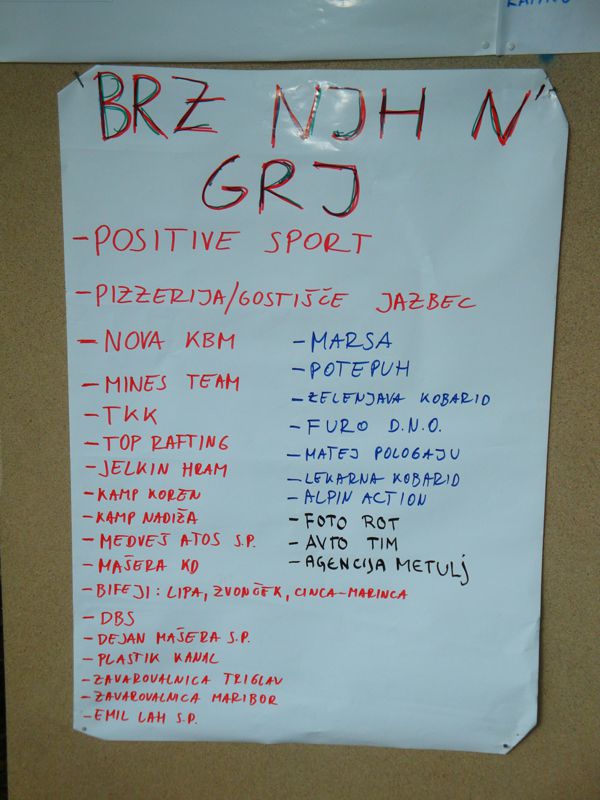 'BRZ NJH N'
GRJ
- POSITIVE SPORT
- PIZZERIJA/GOSTIŠČE JAZBEC
- NOVA KBM
- MINES TEAM
- TKK
- TOP RAFTING
- JELKIN HRAM
- KAMP KOREN
- KAMP NADIŽA
- MEDVEŠ ATOS S.P.
- MAŠERA KD
- BIFEJI: LIPA, ZVONČEK, CINCA-MARINCA
- DBS
- DEJAN MAŠERA S.P.
- PLASTIK KANAL
- ZAVAROVALNICA TRIGLAV
- ZAVAROVALNICA MARIBOR
- EMIL LAH S.P.
- MARSA
- POTEPUH
- ZELENJAVA KOBARID
- FURO D.N.O.
- MATEJ POLOGAJU
- LEKARNA KOBARID
- ALPIN ACTION
- FOTO ROT
- AVTO TIM
- AGENCIJA METULJ